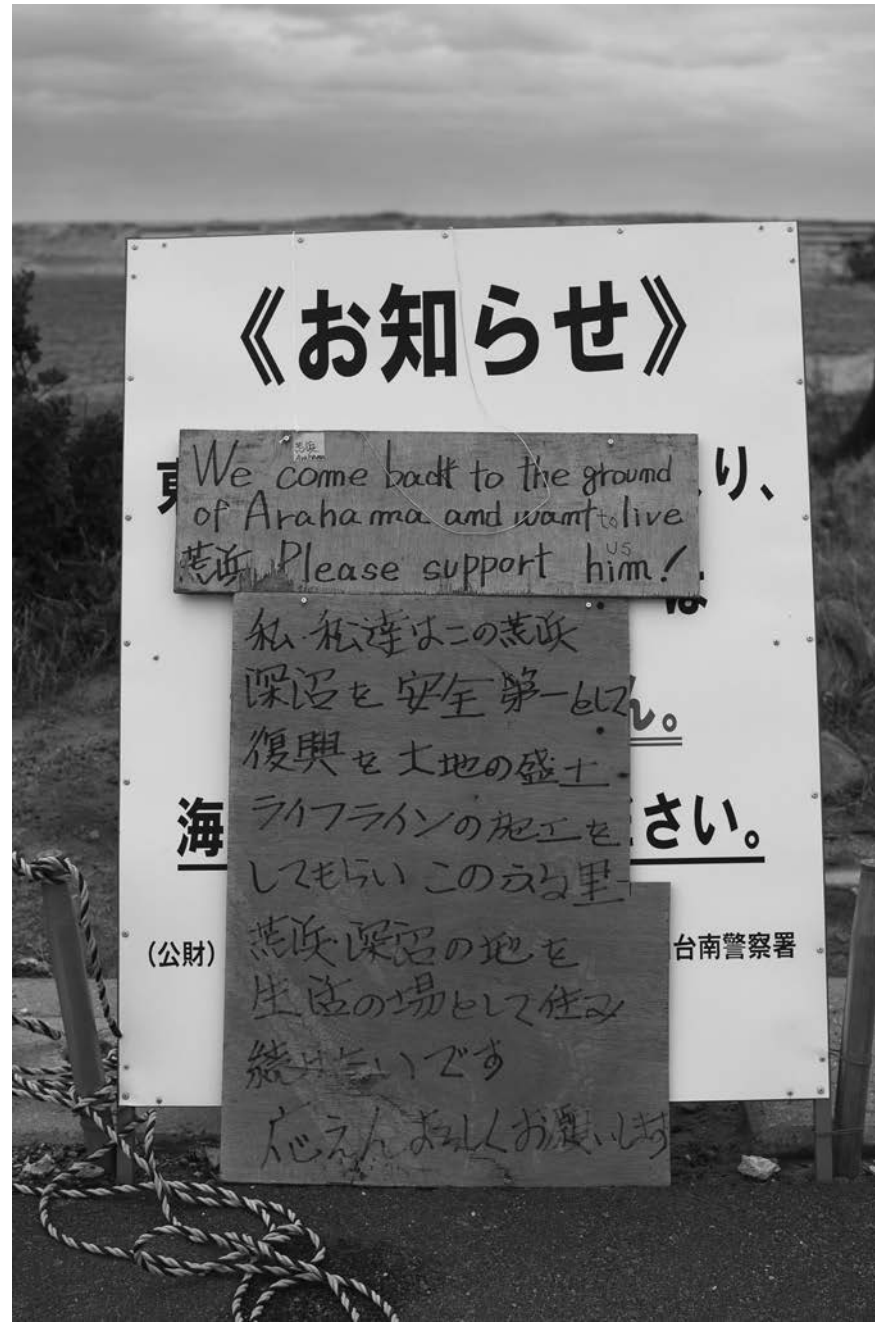 《お知らせ》
荒浜
Arahama
We come back to the ground
of Arahama and want to live
us
荒浜 Please support him!
り、
は
ん。
海
さい。
(公財)
台南警察署
私・私達はこの荒浜
深沼を安全第一として
復興を大地の盛土
ライフラインの施工を
してもらいこのふる里
荒浜・深沼の地を
生活の場として住み
続けたいです
応えんよろしくお願いします